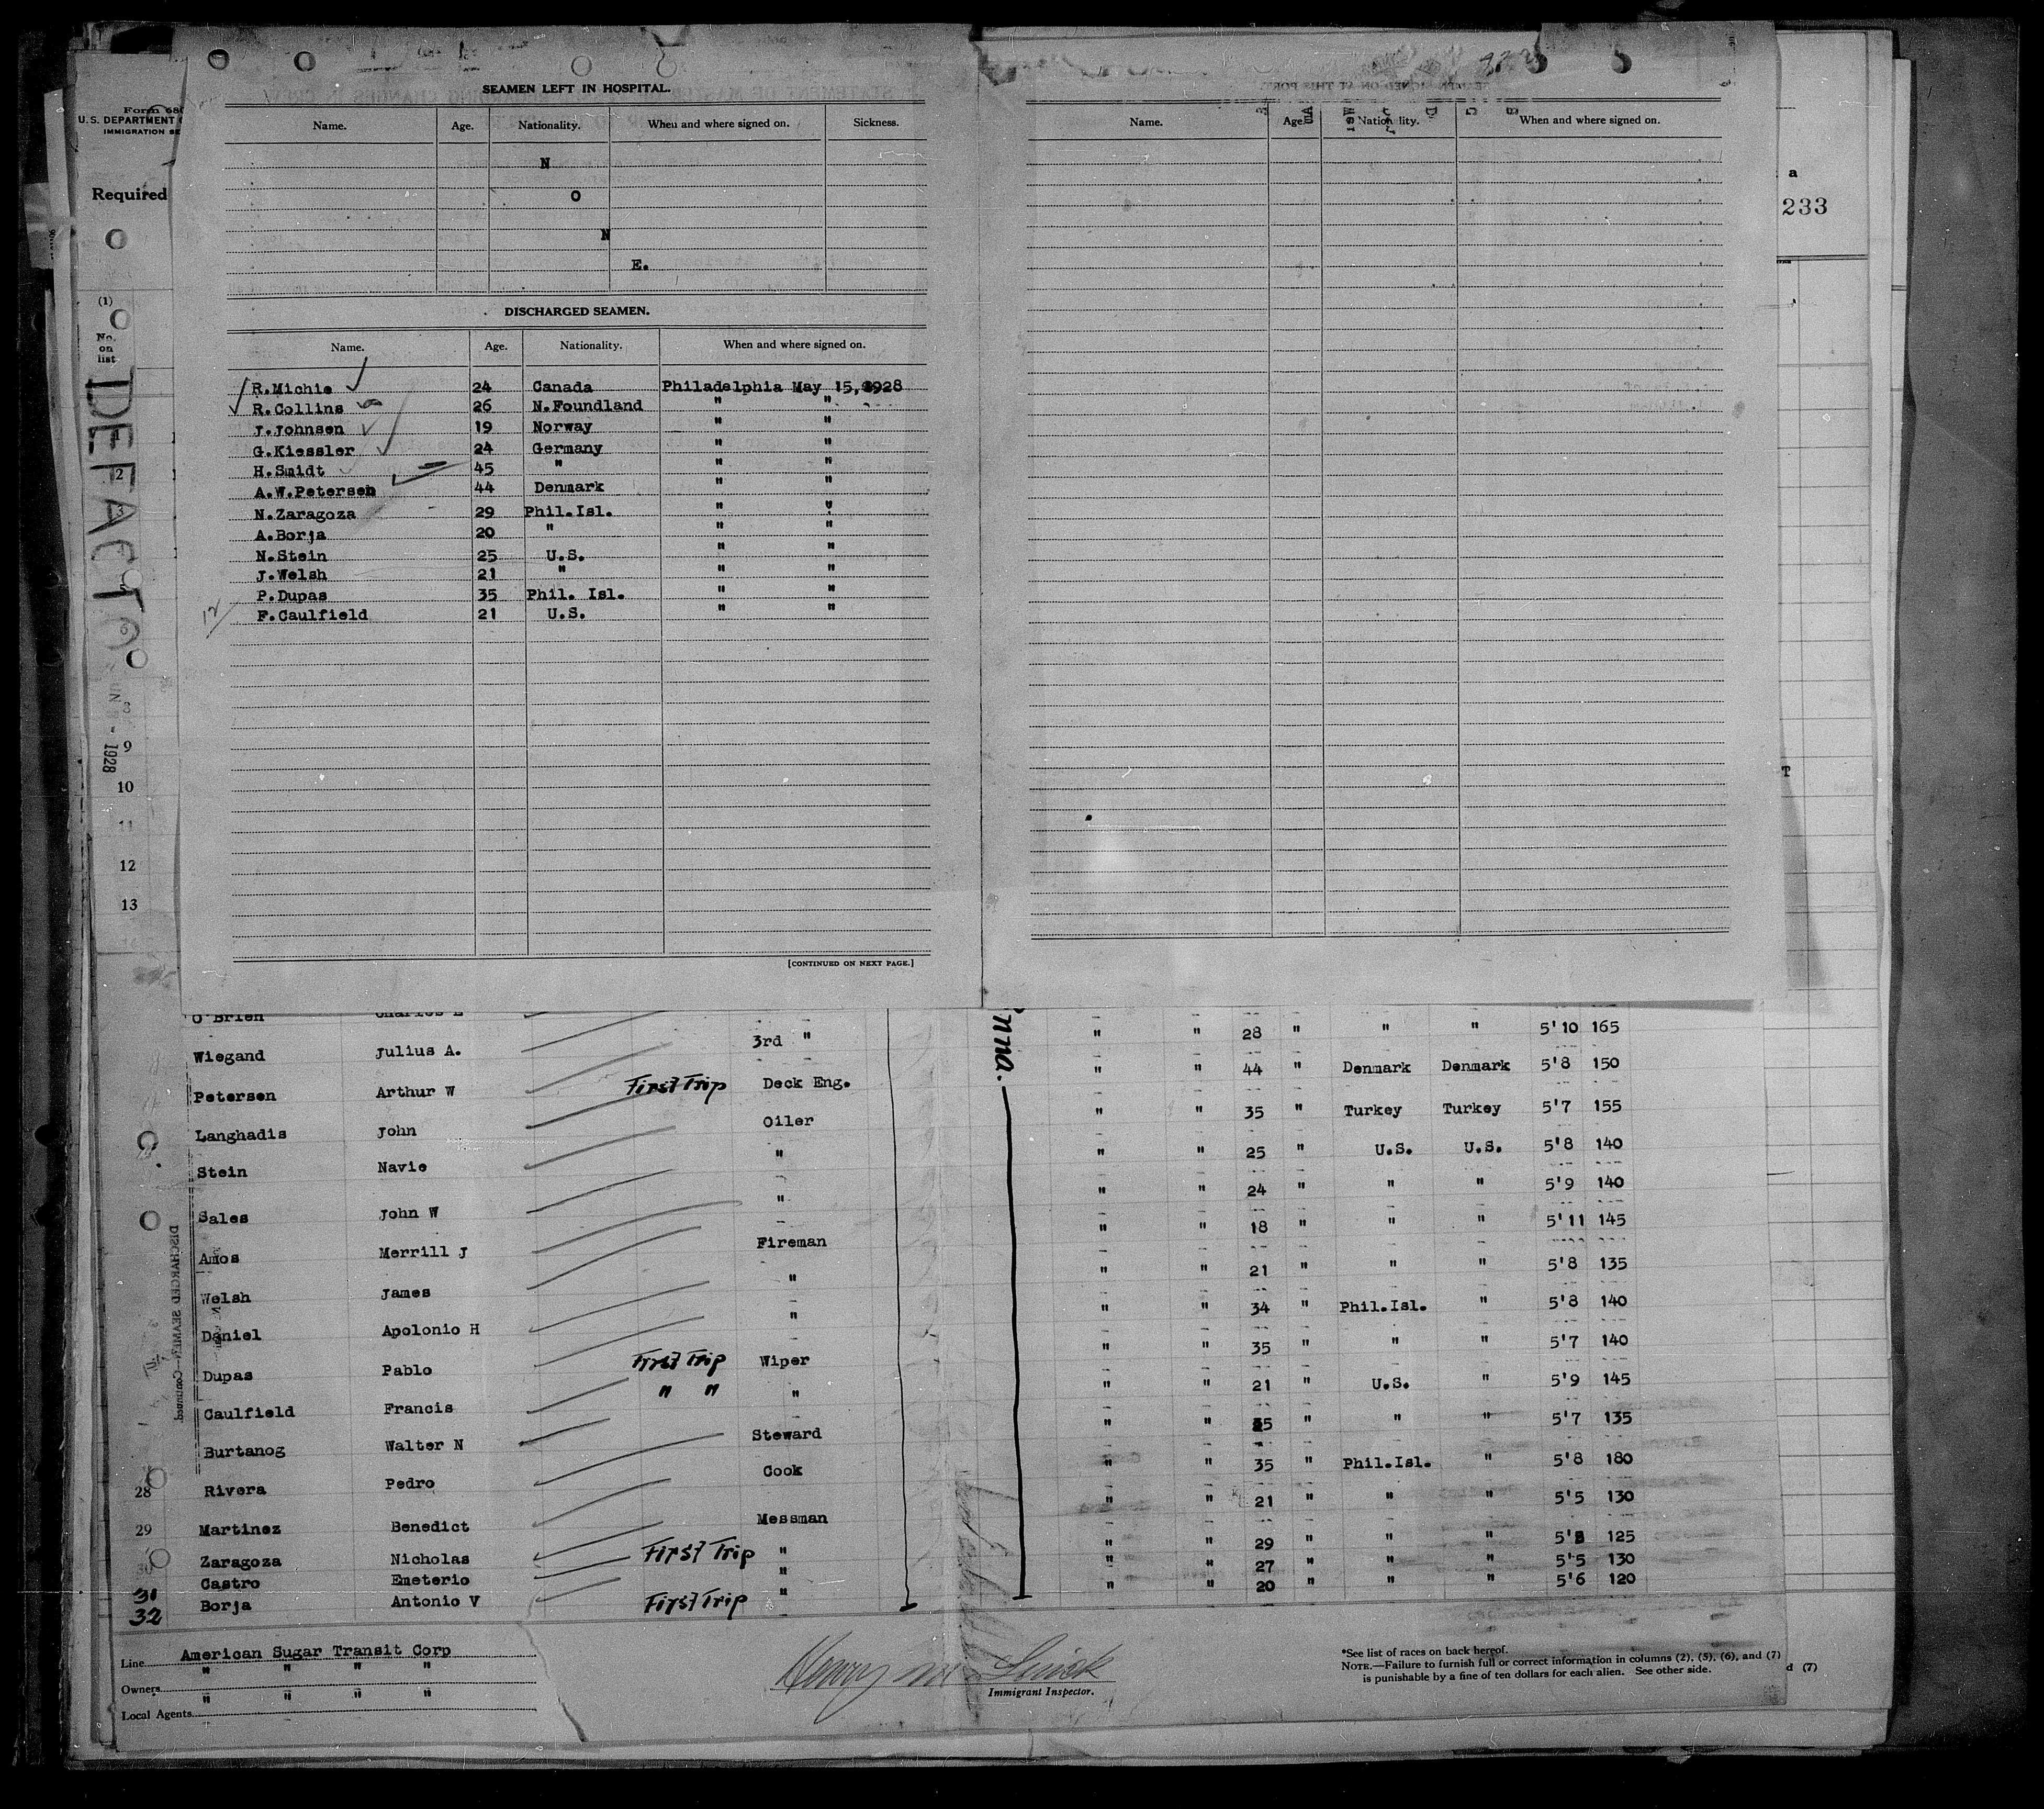 SEAMEN LEFT IN HOSPITAL.
Name. Age. Nationality. When and where signed on. Sickness.
N
O
N
E.
DISCHARGED SEAMEN.
Name. Age. Nationality. When and where signed on.
R.Michie 24 Canada Philadelphia May 15, 1928
R.Collins 26 N.Foundland " "
J.Johnsen 19 Norway " "
G.Kiessler 24 Germany " "
H.Smidt 45 " " "
A.W.Petersen 44 Denmark " "
N.Zaragoza 29 Phil.Isl. " "
A.Borja 20 " " "
N.Stein 25 U.S. " "
J.Welsh 21 " " "
P.Dupas 35 Phil. Isl. " "
12 F.Caulfield 21 U.S. " "
[CONTINUED ON NEXT PAGE.]
Name. Age Nationality. When and where signed on.
U.S. DEPARTMENT
Required
(1)
No. on list
DEFACTO
1928
1
2
3
9
10
11
12
13
a
233
T
O'Brien Charles E
Wiegand Julius A. 3rd " " " 28 " " " 5'10 165
Petersen Arthur W First Trip Deck Eng. " " 44 " Denmark Denmark 5'8 150
Langhadis John Oiler " " 35 " Turkey Turkey 5'7 155
Stein Navie " " " 25 " U.S. U.S. 5'8 140
Sales John W " " " 24 " " " 5'9 140
Amos Merrill J Fireman " " 18 " " " 5'11 145
Welsh James " " " 21 " " " 5'8 135
Daniel Apolonio H " " " 34 " Phil.Isl. " 5'8 140
Dupas Pablo First Trip Wiper " " 35 " " " 5'7 140
Caulfield Francis " " " " " 21 " U.S. " 5'9 145
Burtanog Walter N Steward " " 35 " " " 5'7 135
28 Rivera Pedro Cook " " 35 " Phil.Isl. " 5'8 180
29 Martinez Benedict Messman " " 21 " " " 5'5 130
30 Zaragoza Nicholas First Trip " " " 29 " " " 125
31 Castro Emeterio " " " 27 " " " 5'5 130
32 Borja Antonio V First Trip " " " 20 " " " 5'6 120
DISCHARGED SEAMEN—Continued
Line American Sugar Transit Corp
Owners " " " "
Local Agents " " " "
Immigrant Inspector.
*See list of races on back hereof.
NOTE.—Failure to furnish full or correct information in columns (2), (5), (6), and (7)
is punishable by a fine of ten dollars for each alien. See other side.
d (7)